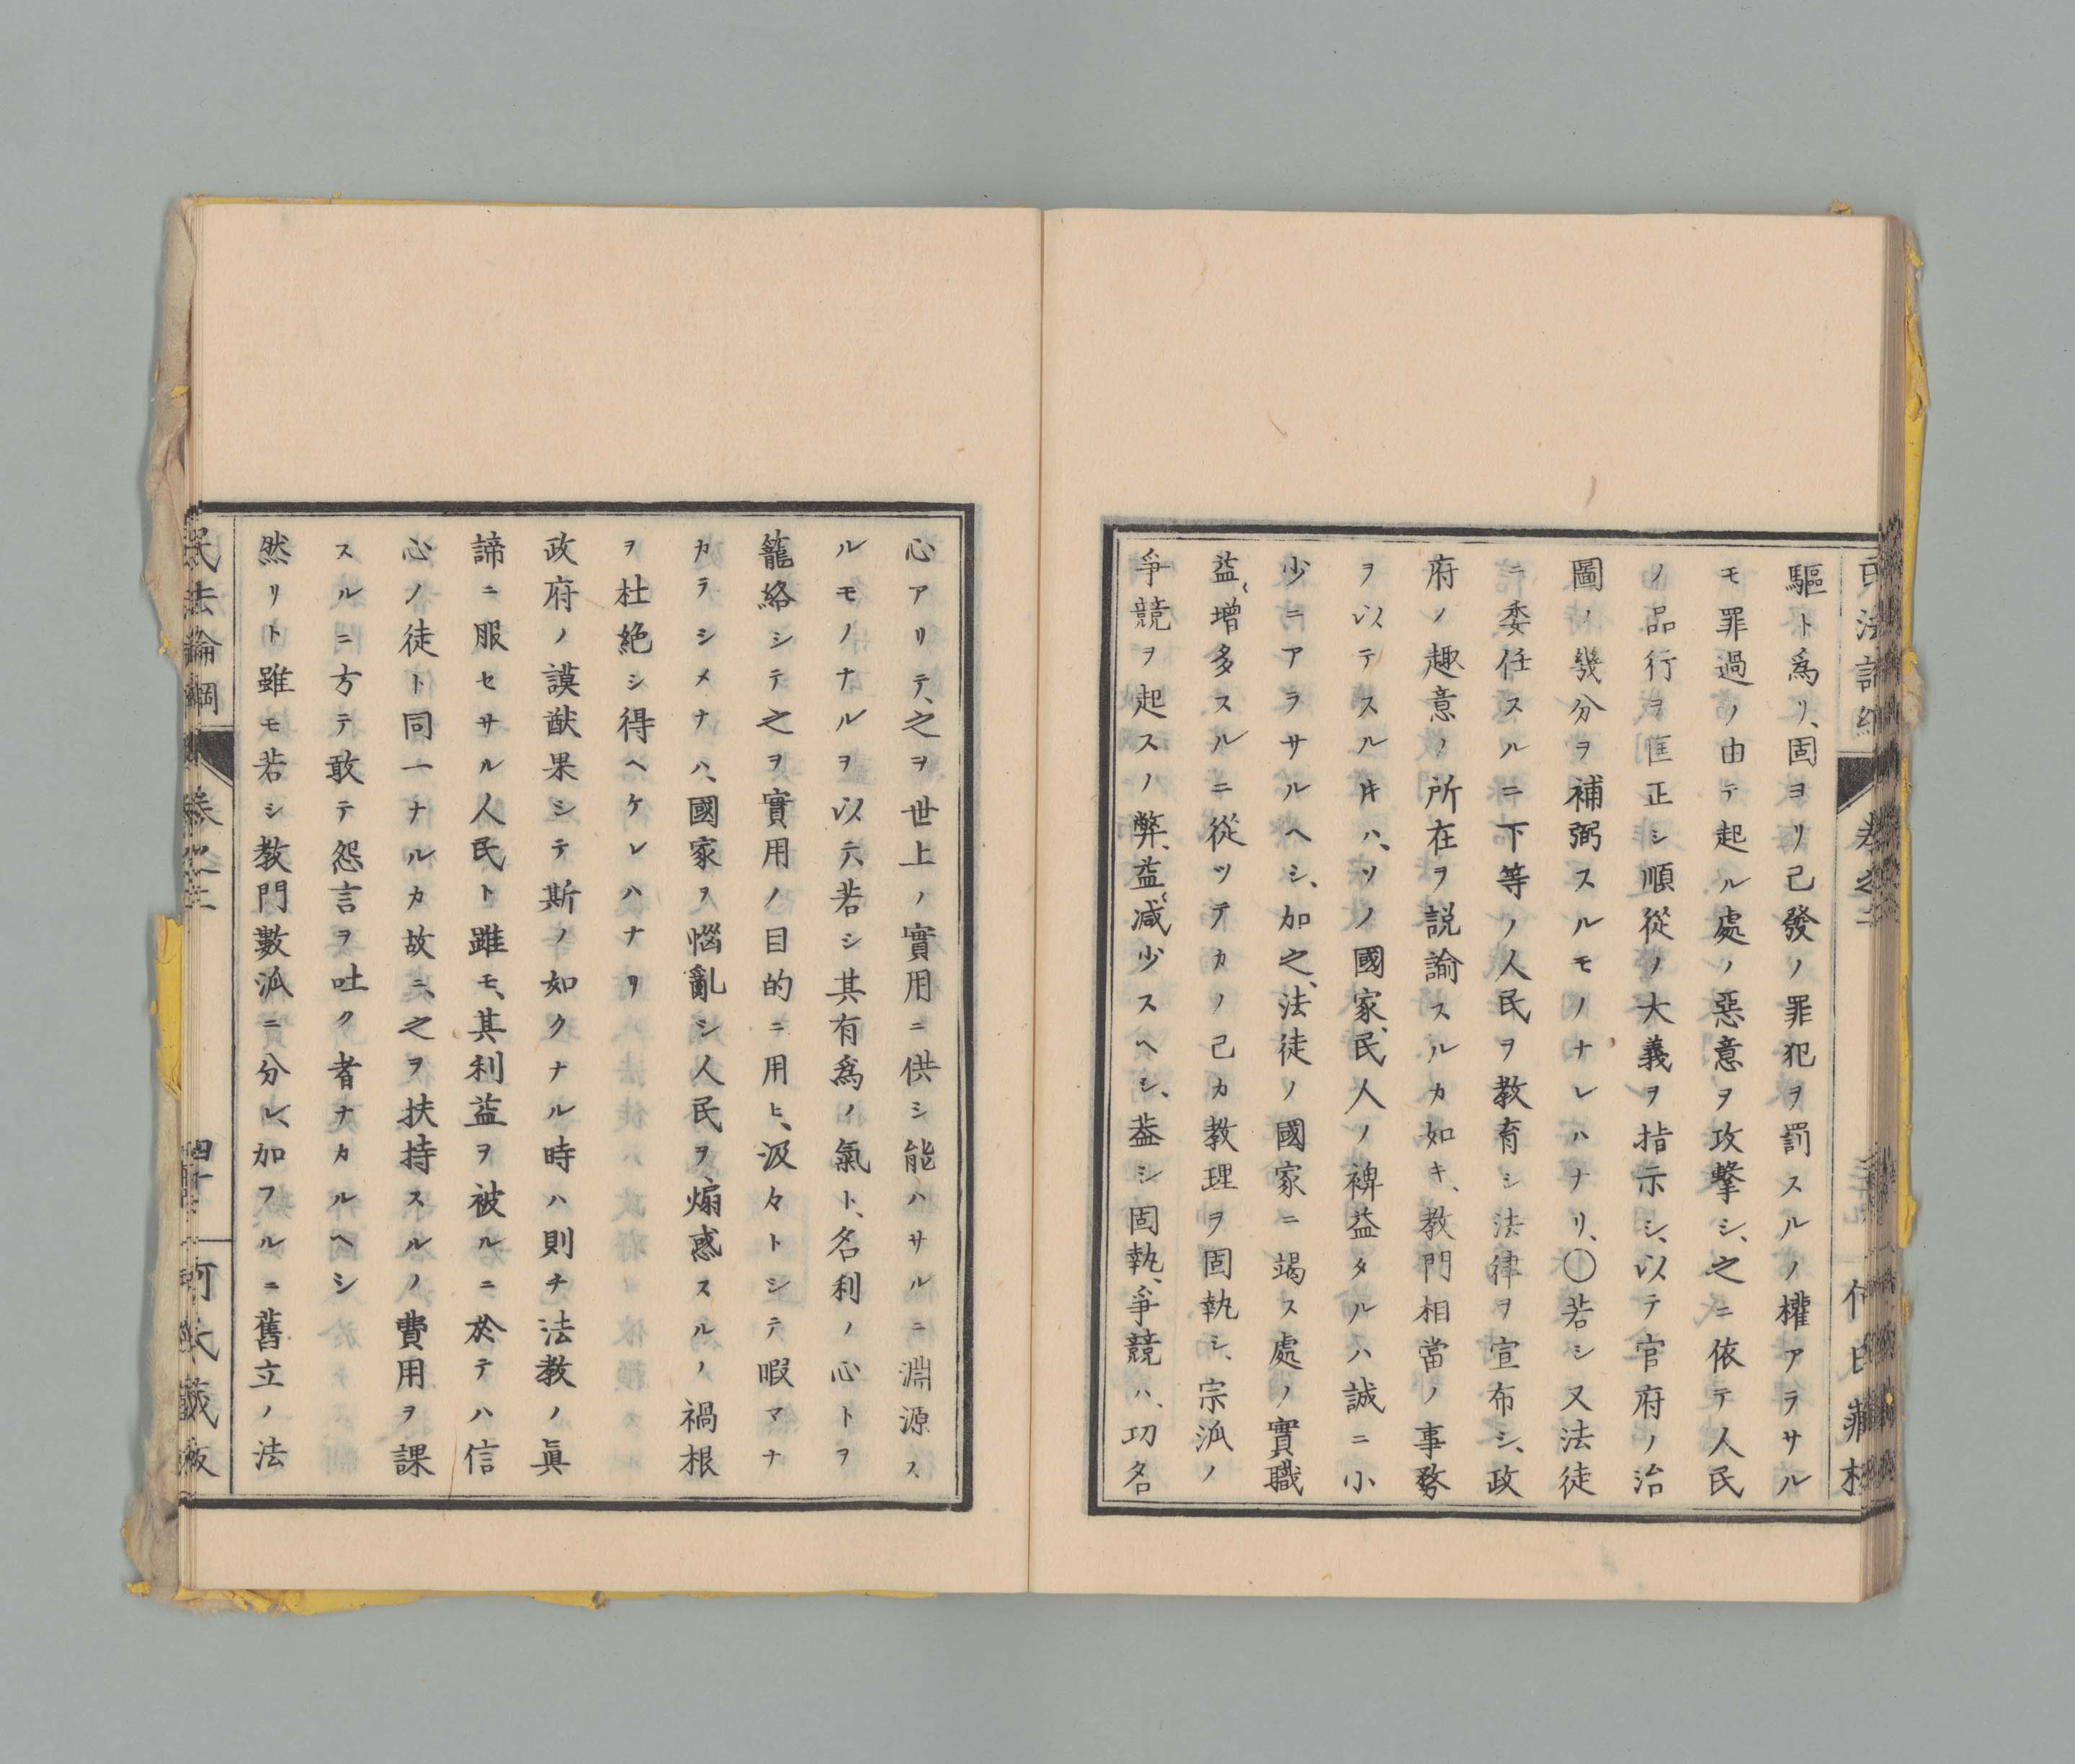 驅ト爲リ、固ヨリ已發ノ罪犯ヲ罰スルノ權アラサル
モ罪過ノ由テ起ル處ノ惡意ヲ攻擊シ、之ニ依テ人民
ノ品行ヲ匡正シ順從ノ大義ヲ指示シ、以テ官府ノ治
圖ノ幾分ヲ補弼スルモノナレハナリ、〇若シ又法徒
ニ委任スルニ下等ノ人民ヲ教育シ法律ヲ宣布シ、政
府ノ趣意ノ所在ヲ説諭スルカ如キ、教門相當ノ事務
ヲ以テスルキハ、ソノ國家、民人ノ裨益タルハ誠ニ小
少ニアラサルヘシ、加之、法徒ノ國家ニ竭ス處ノ實職
益〻增多スルニ從ツテカノ己カ教理ヲ固執シ、宗派ノ
爭競ヲ起スノ弊、益〻減少スヘシ、蓋シ固執、爭競ハ、功名
心アリテ、之ヲ世上ノ實用ニ供シ能ハサルニ淵源ス
ルモノナルヲ以テ、若シ其有爲ノ氣ト、名利ノ心トヲ
籠絡シテ之ヲ實用ノ目的ニ用ヒ、汲々トシテ暇マナ
カラシメナハ、國家ヲ惱亂シ人民ヲ煽惑スルノ禍根
ヲ杜絶シ得ヘケレハナリ
政府ノ謨猷果シテ斯ノ如クナル時ハ則チ法教ノ眞
諦ニ服セサル人民ト雖モ、其利益ヲ被ルニ於テハ信
心ノ徒ト同一ナルカ故ニ、之ヲ扶持スルノ費用ヲ課
スルニ方テ敢テ怨言ヲ吐ク者ナカルヘシ
然リト雖モ若シ教門數派ニ分レ、加フルニ舊立ノ法
民法論綱 卷之三 四十 何氏藏板